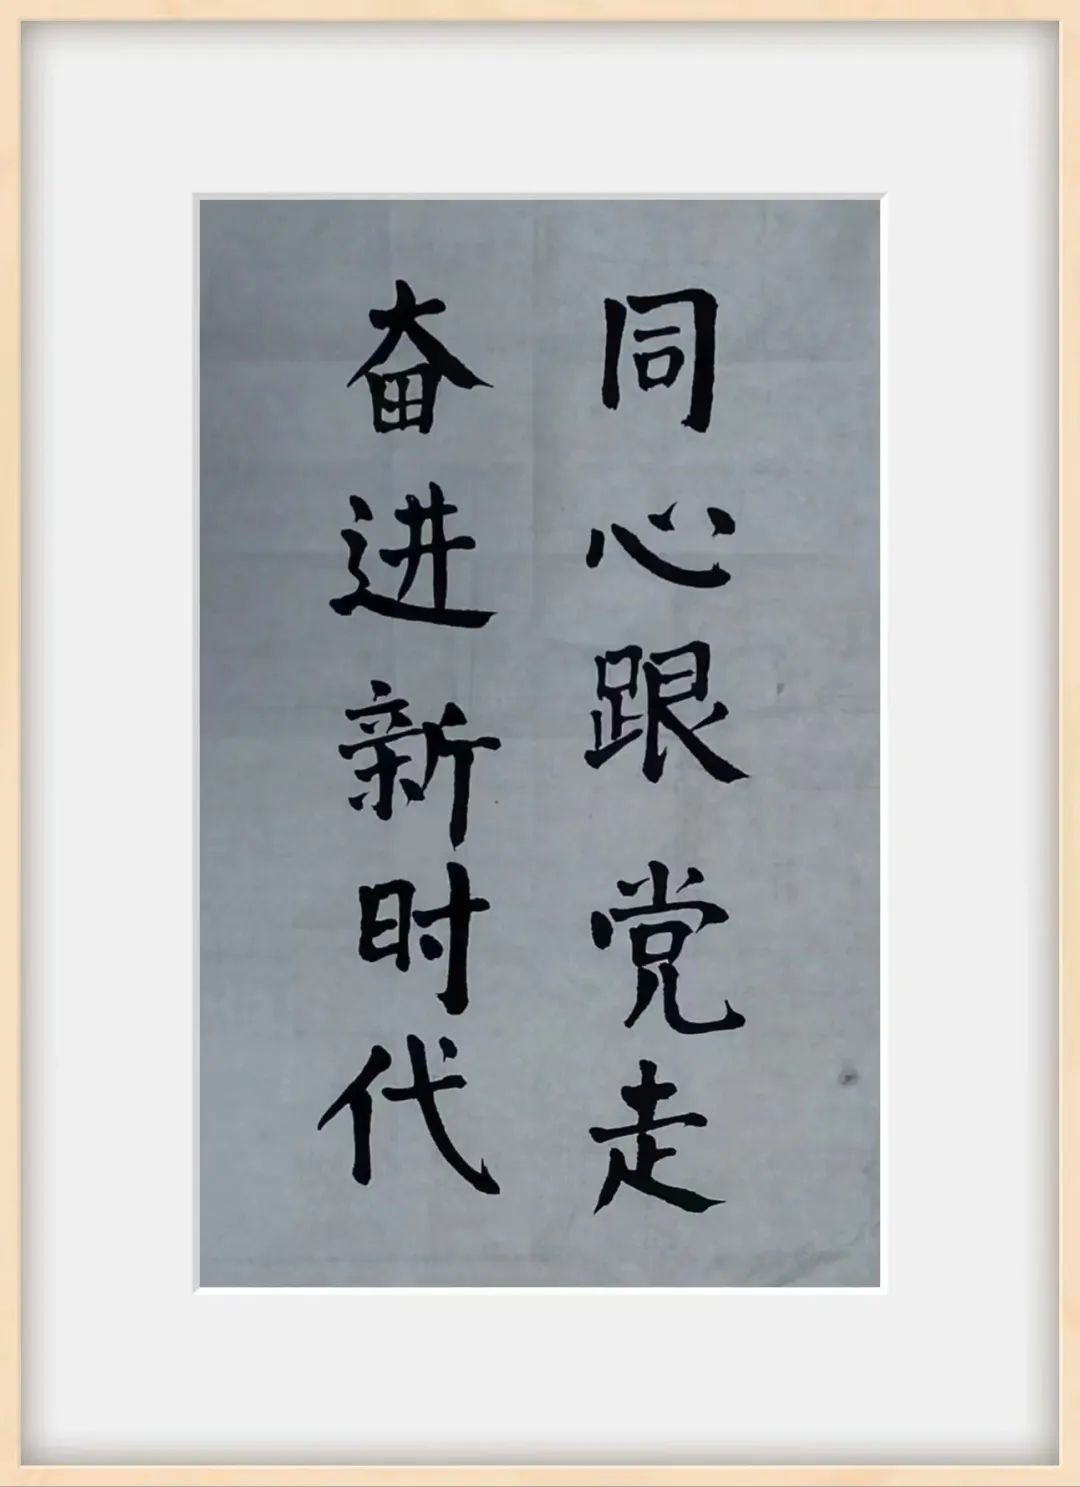 同心跟党走
奋进新时代